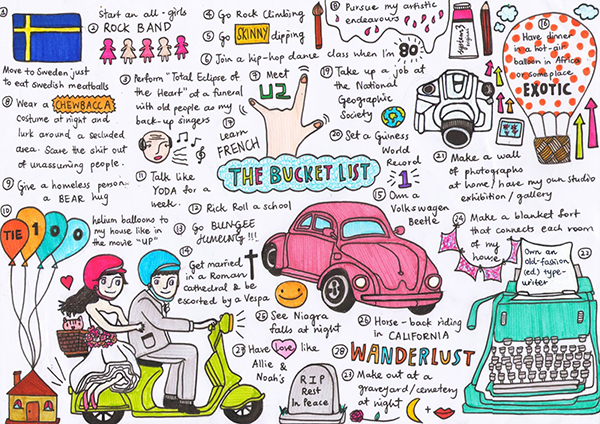 ①
Move to Sweden just
to eat Swedish meatballs
Start an all-girls
② ROCK BAND
③ Perform "Total Eclipse of
the Heart" at a funeral
with old people as my
back-up singers
④ Go Rock Climbing
⑤ Go SKINNY dipping
⑥ Join a hip-hop dance class when I'm 80
⑦ Meet
U2
⑧ Wear a CHEWBACCA
costume at night and
lurk around a secluded
area. Scare the shit out
of unassuming people.
⑨ Give a homeless person..
a BEAR hug
⑩
TIE 100
helium balloons to
my house like in
the movie "UP"
⑪ Talk like
YODA for a
week.
⑫ Rick Roll a school
⑬ Go BUNGEE
JUMPING!!!
⑭
Get married
in a Roman
cathedral & be
escorted by a Vespa
THE BUCKET LIST
learn
FRENCH
Pursue my artistic
endeavours
⑮ Own a
Volkswagen
Beetle
Have dinner
in a hot-air
balloon in Africa
or someplace
EXOTIC
⑲ Take up a job at
the National
Geographic
Society
⑳ Set a Guiness
World
Record
1
㉑ Make a wall
of photographs
at home / have my own studio
exhibition / gallery
㉒
Own an
old-fashion
(ed) type-
writer
㉔ Make a blanket fort
that connects each room
of my
house
㉕ See Niagra
falls at night
㉖ Horse-back riding
in CALIFORNIA
Have love like
Allie &
Noah's
㉘ WANDERLUST
Make out at a
graveyard/cemetery
at night
R I P
Rest
In Peace